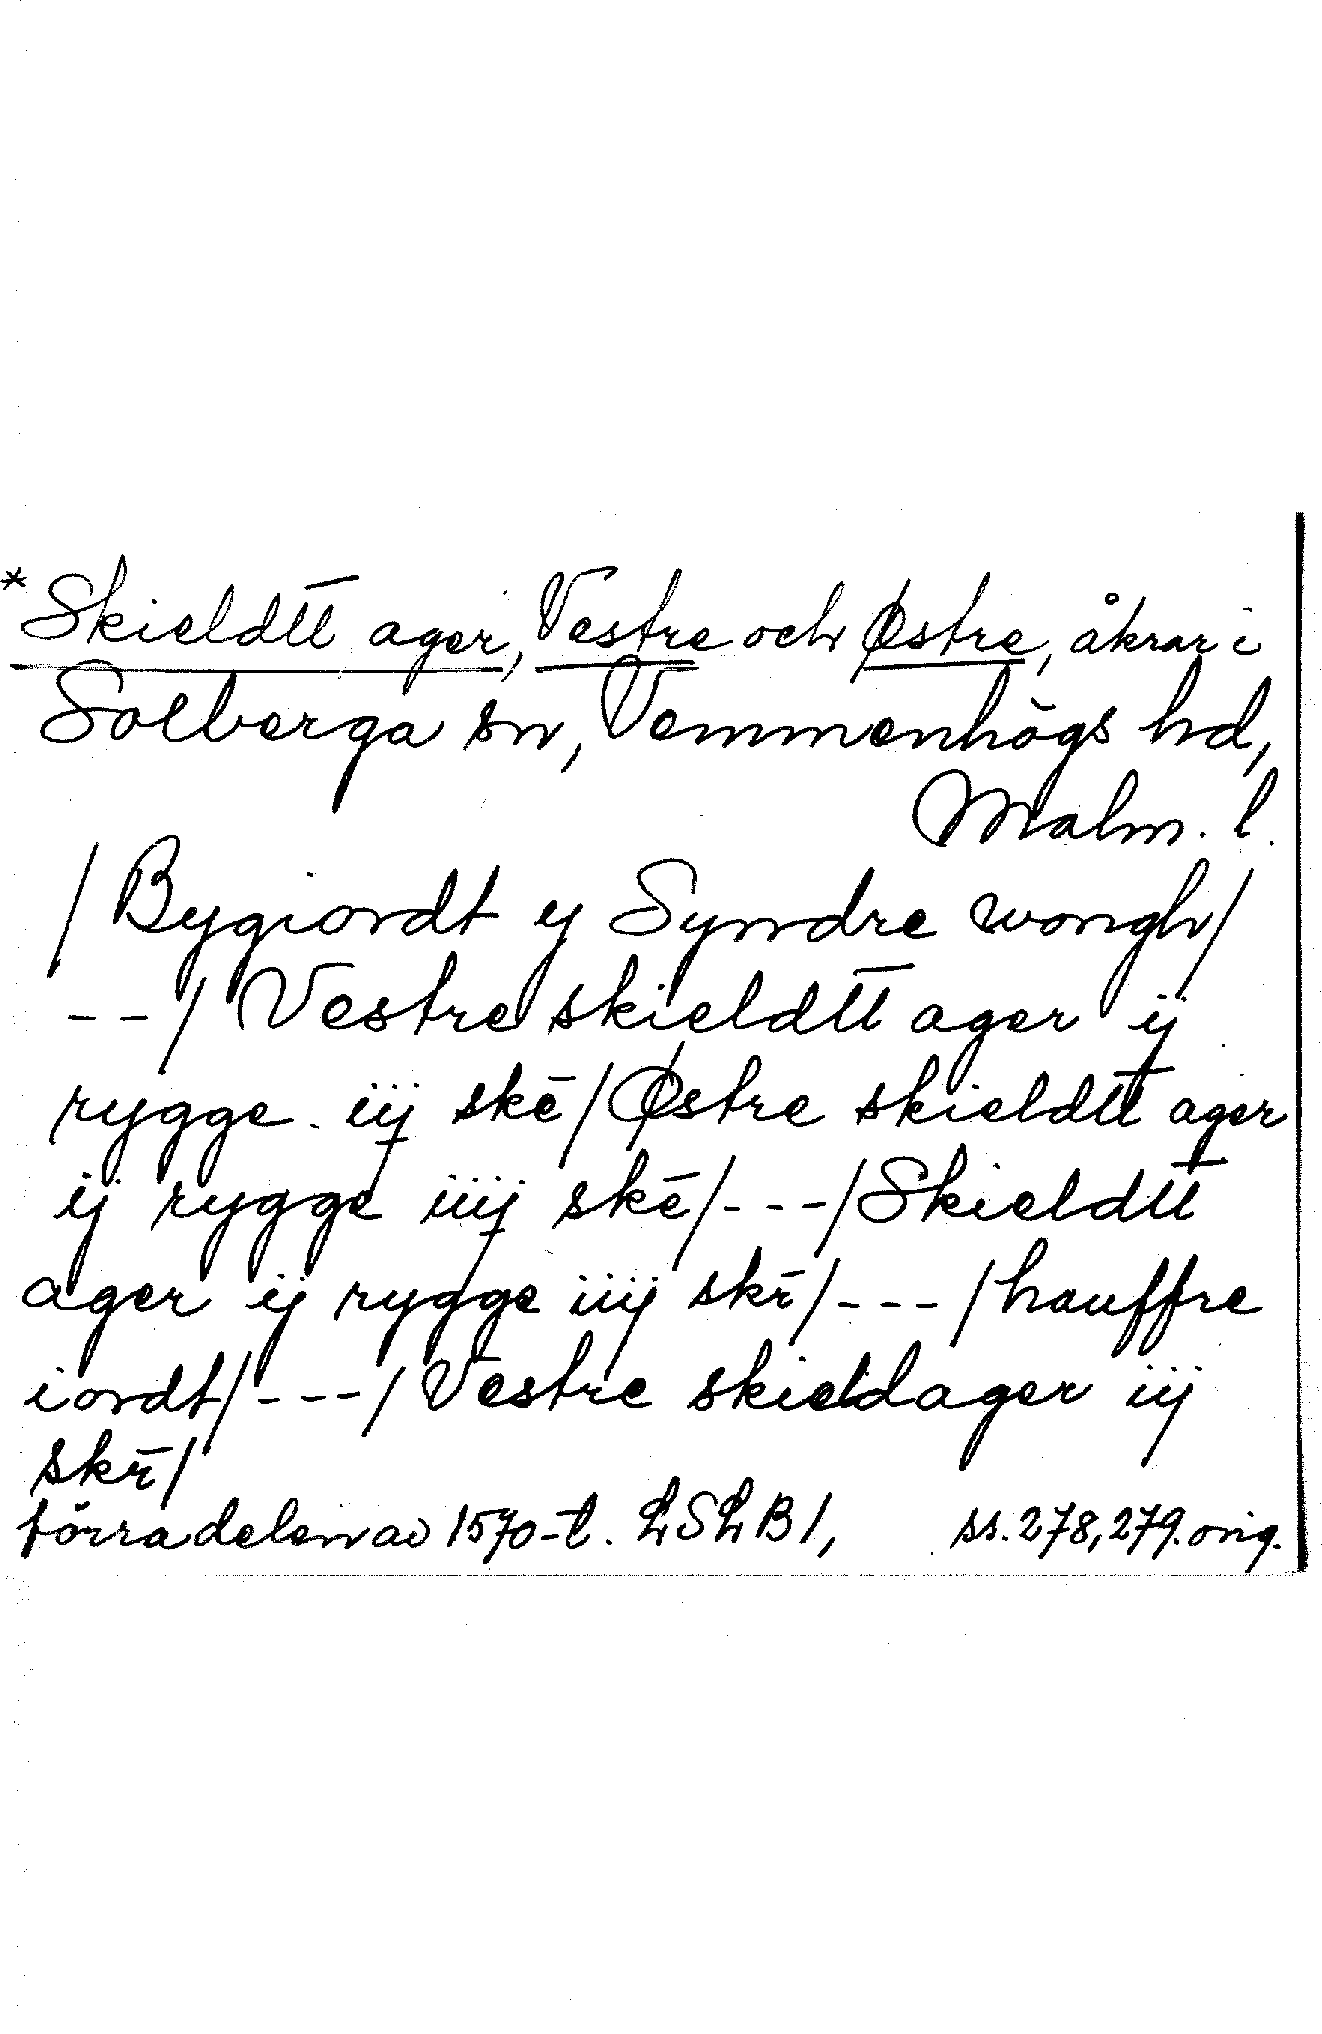 *Skieldtt ager, Vestre och Østre, åkrar i
Solberga sn, Vemmenhögs hd,
Malm. l.
/Bygiordt y Syndre wongh/
--/Vestre skieldtt ager ij
rygge iij skē/Østre skieldtt ager
ij rygge iiij skē/---/Skieldtt
ager ij rygge iiij skr̄/---/hauffre
iordt/---/Vestre skieldager iij
skr̄/
förra delen av 1570-t. LSLB 1, ss. 278, 279. orig.